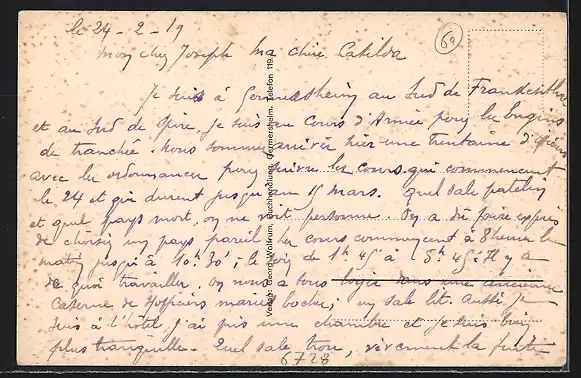 le 24 - 2 - 19
60
Mon cher Joseph Ma chère Catilda
Je suis à Germersheim au Sud de Frankenthal
et au Sud de Spire. Je suis au Cours d'Armée pour les Engins
de tranchée. Nous sommes arrivés hier une trentaine d'officiers
avec les ordonnances pour suivre les cours qui commencent
le 24 et qui durent jusqu'au 15 mars. Quel sale patelin
et quel pays mort, on ne voit personne. On a dû faire exprès
de choisir un pays pareil. Les cours commencent à 8 heures le
matin jusqu'à 10h 30'; le soir de 1h 45 à 5h 45. Il y a
de quoi travailler. On nous a tous logés dans une ancienne
Caserne de s/officiers mariés boches, un sale lit. Aussi je
suis à l'hôtel, j'ai pris une chambre et je suis bien
plus tranquille. Quel sale trou, vivement la fuite
6728
Verlag: Georg Wolfrum, Buchhandlung, Germersheim. Telefon 119.